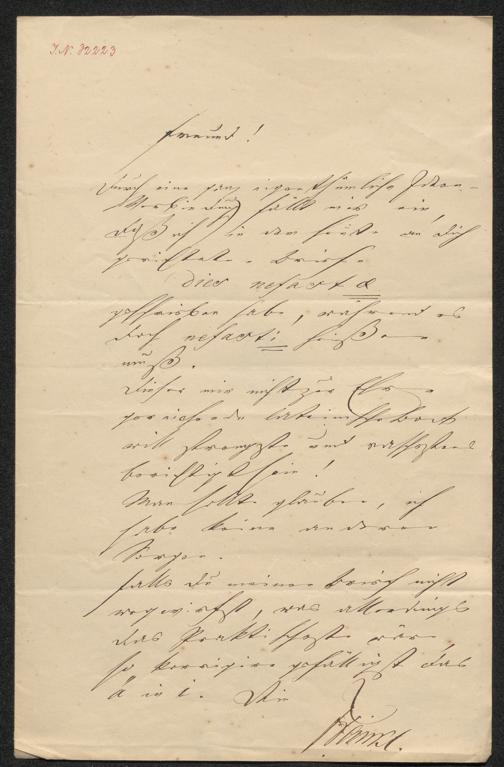 J.N. 32223
Freund!
Durch eine ganz eigenthümliche Ideen-
Verbindung fällt mir ein,
daß ich in dem heute an Dich
gerichteten Briefe
dies nefasta
geschrieben habe, während es
doch nefasti heißen
muß.
Dieser mir nicht zur Ehre
gereichende lateinische Bock
will strengstens und raschestens
berichtigt sein!
Man sollte glauben, ich
habe keine anderen
Sorgen.
Falls Du meinen Brief nicht
wegwirfst, was allerdings
das Praktischste wäre,
so korrigire gefälligst das
a in i. Dein